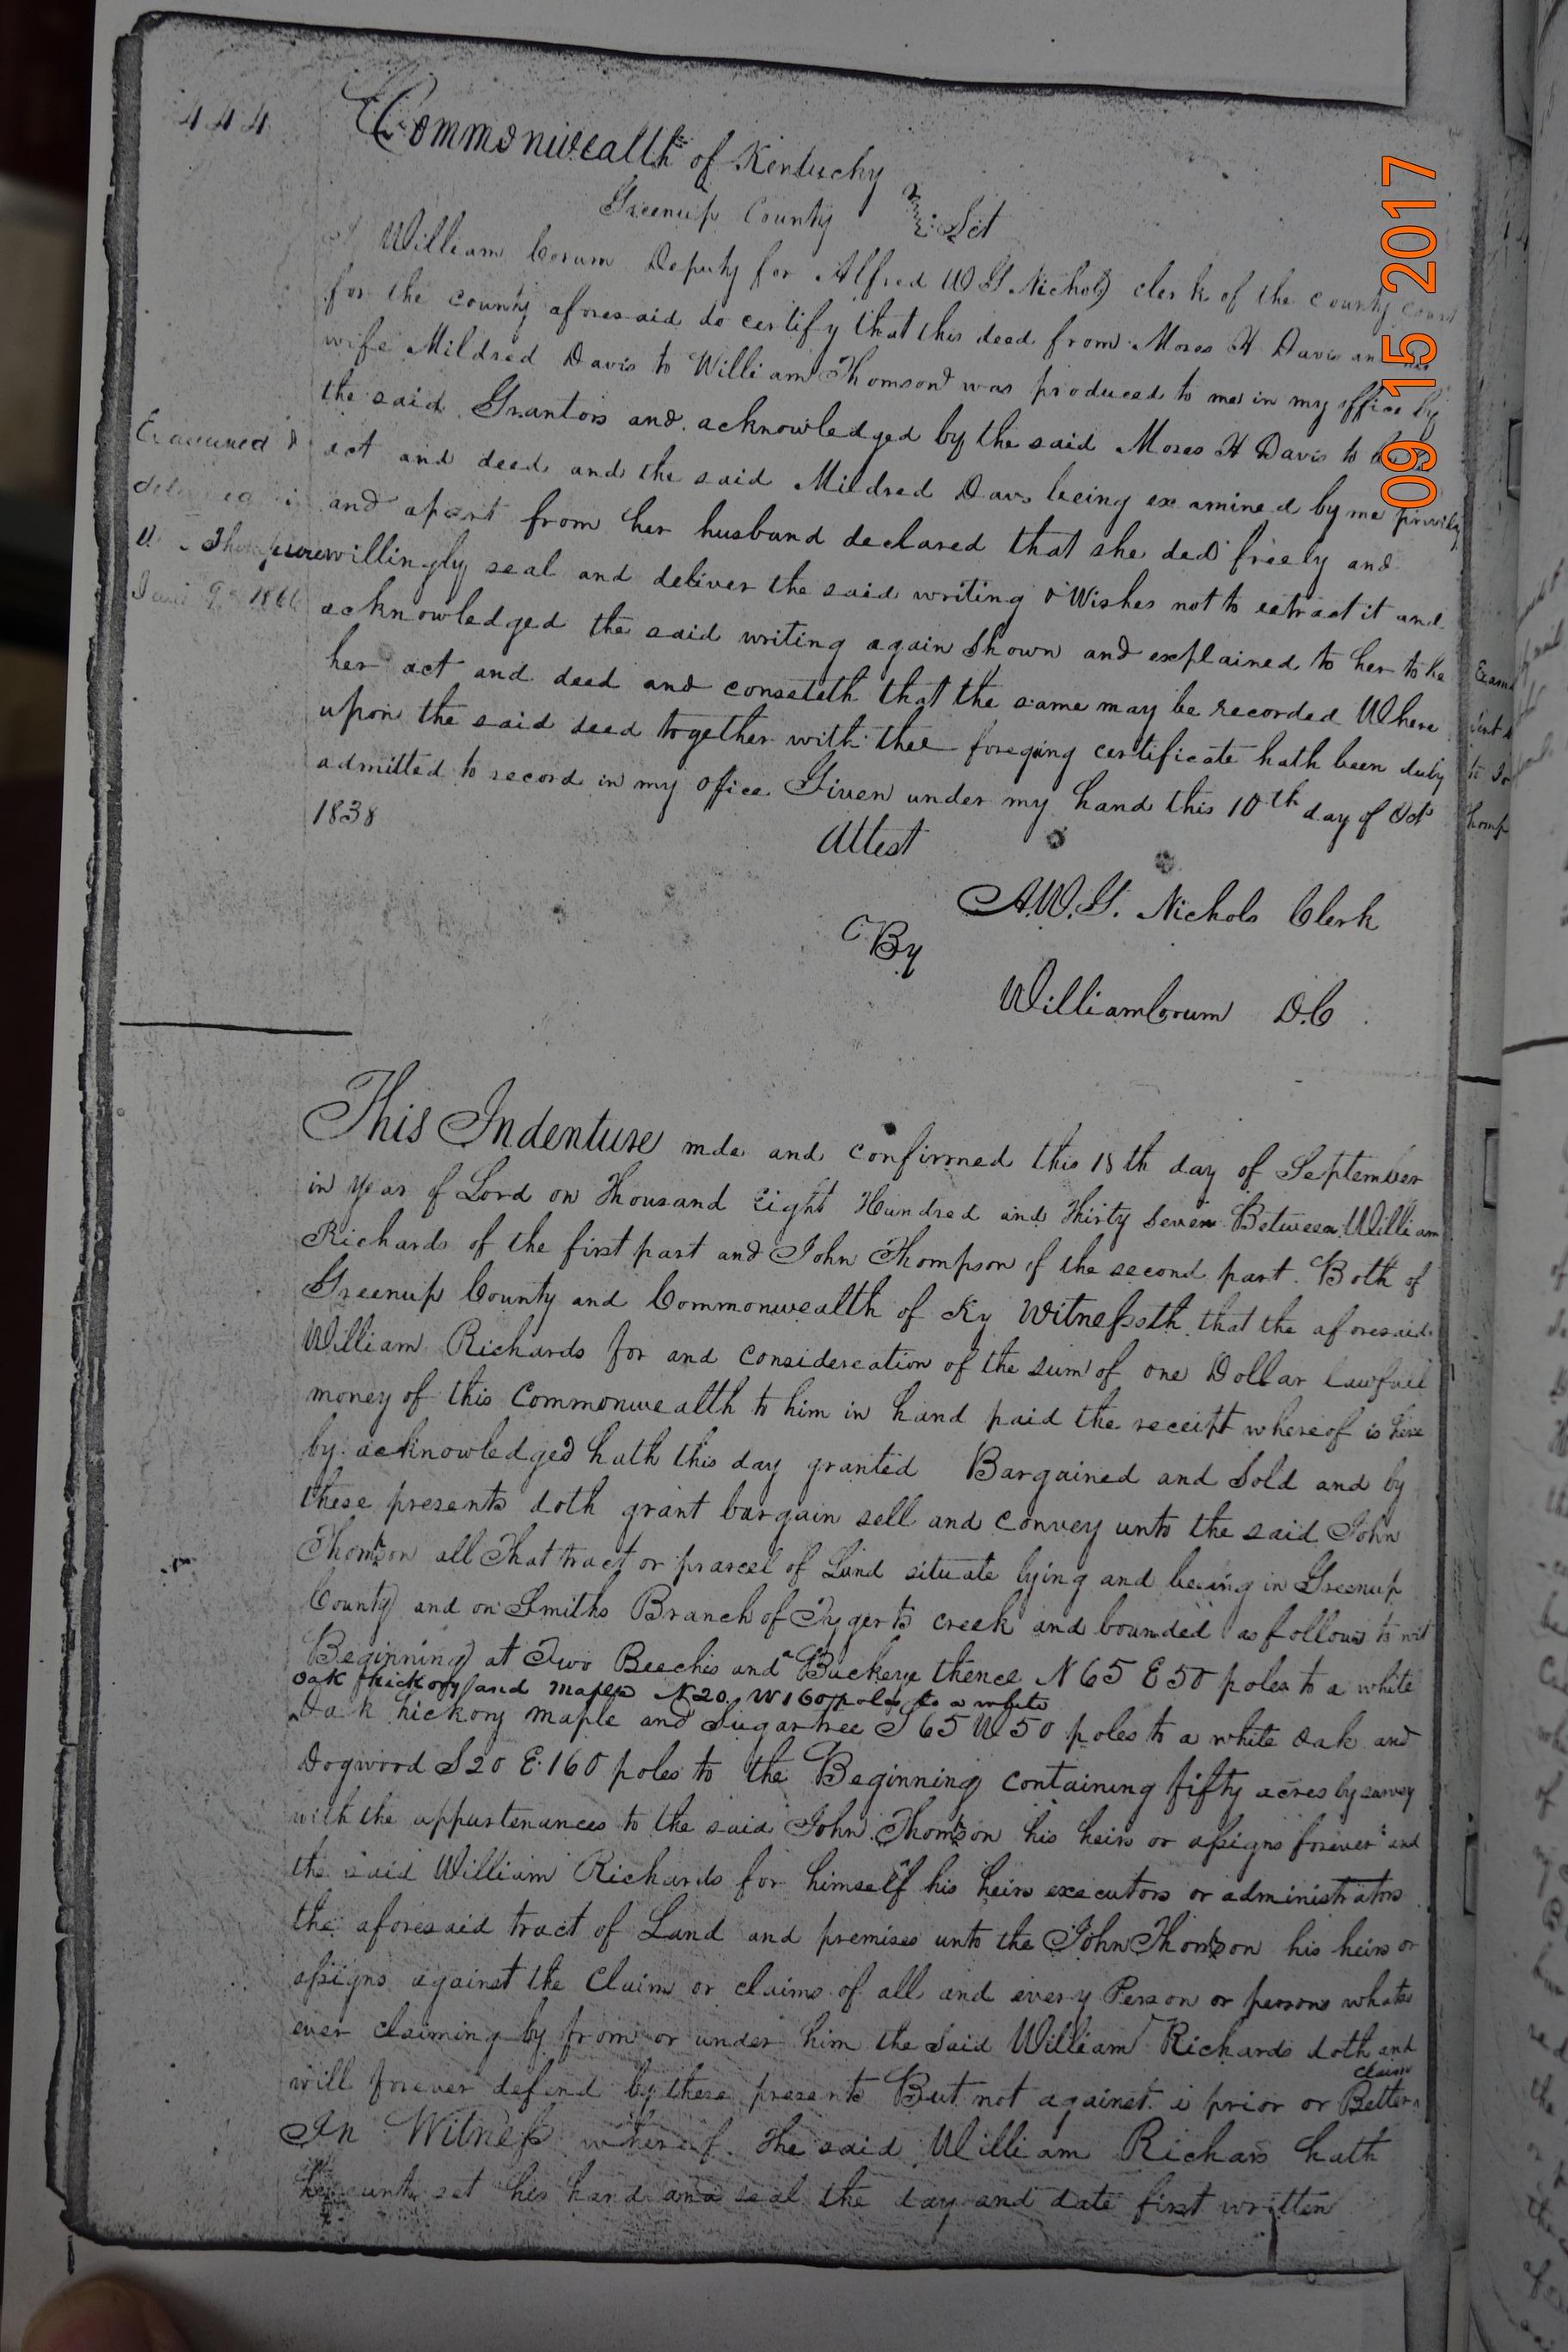 444
Commonwealth of Kentucky
Greenup County Sct
I William Corum Deputy for Alfred W G Nichols clerk of the county court
for the county aforesaid do certify that this deed from Moses H Davis and
wife Mildred Davis to William Thomson was produced to me in my office by
the said Grantors and acknowledged by the said Moses H Davis to be
act and deed and the said Mildred Davs being examined by me privily
and apart from her husband declared that she ded freely and
willingly seal and deliver the said writing & Wishes not to retract it and
acknowledged the said writing again shown and explained to her to be
her act and deed and conseteth that the same may be recorded Where
upon the said deed together with thee foregoing certificate hath been duly
admitted to record in my office Given under my hand this 10th day of Oct
1838
Attest
A.W.G. Nichols Clerk
By
William Corum D.C
Examined &
1866
This Indenture mde and confirmed this 18th day of September
in year of Lord on Thousand Eight Hundred and Thirty Seven Between William
Richards of the first part and John Thompson of the second part. Both of
Greenup County and Commonwealth of Ky Witnesseth that the aforesaid
William Richards for and consideration of the sum of one Dollar lawfull
money of this Commonwealth to him in hand paid the receipt whereof is here
by acknowledged hath this day granted Bargained and Sold and by
these presents doth grant bargain sell and convey unto the said John
Thomson all That tract or prarcel of Land situate lying and being in Greenup
County and on Smiths Branch of Tygerts creek and bounded as follows to wit
Beginning at Two Beeches and a Buckeye thence N 65 E 50 poles to a white
oak hickory and maple N 20 W 160 poles to a white
Oak hickory maple and Sugartree S 65 W 50 poles to a white Oak and
Dogwood S 20 E. 160 poles to the Beginning containing fifty acres by survey
with the appurtenances to the said John Thomson his heirs or assigns forever and
the said William Richards for himself his heirs executors or administrators
the aforesaid tract of Land and premises unto the John Thomson his heirs or
assigns against the Claim or claims of all and every Person or persons whatso
ever claiming by from or under him the Said William Richards doth and
will forever defend by these presents But not against a prior or Better
claim
In Witness whereof The said William Richars hath
hereunto set his hand and seal the day and date first written
09 15 2017